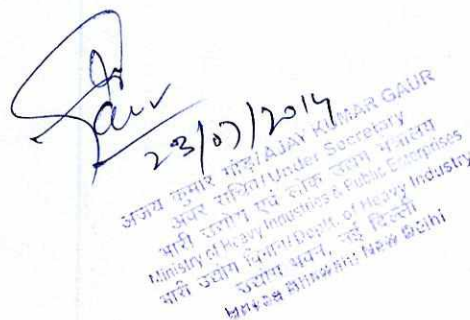 Gaur
23/07/2014
अजय कुमार गौड़/AJAY KUMAR GAUR
अवर सचिव/Under Secretary
भारी उद्योग एवं लोक उद्यम मंत्रालय
Ministry of Heavy Industries & Public Enterprises
भारी उद्योग विभाग/Deptt. of Heavy Industry
उद्योग भवन, नई दिल्ली
New Delhi